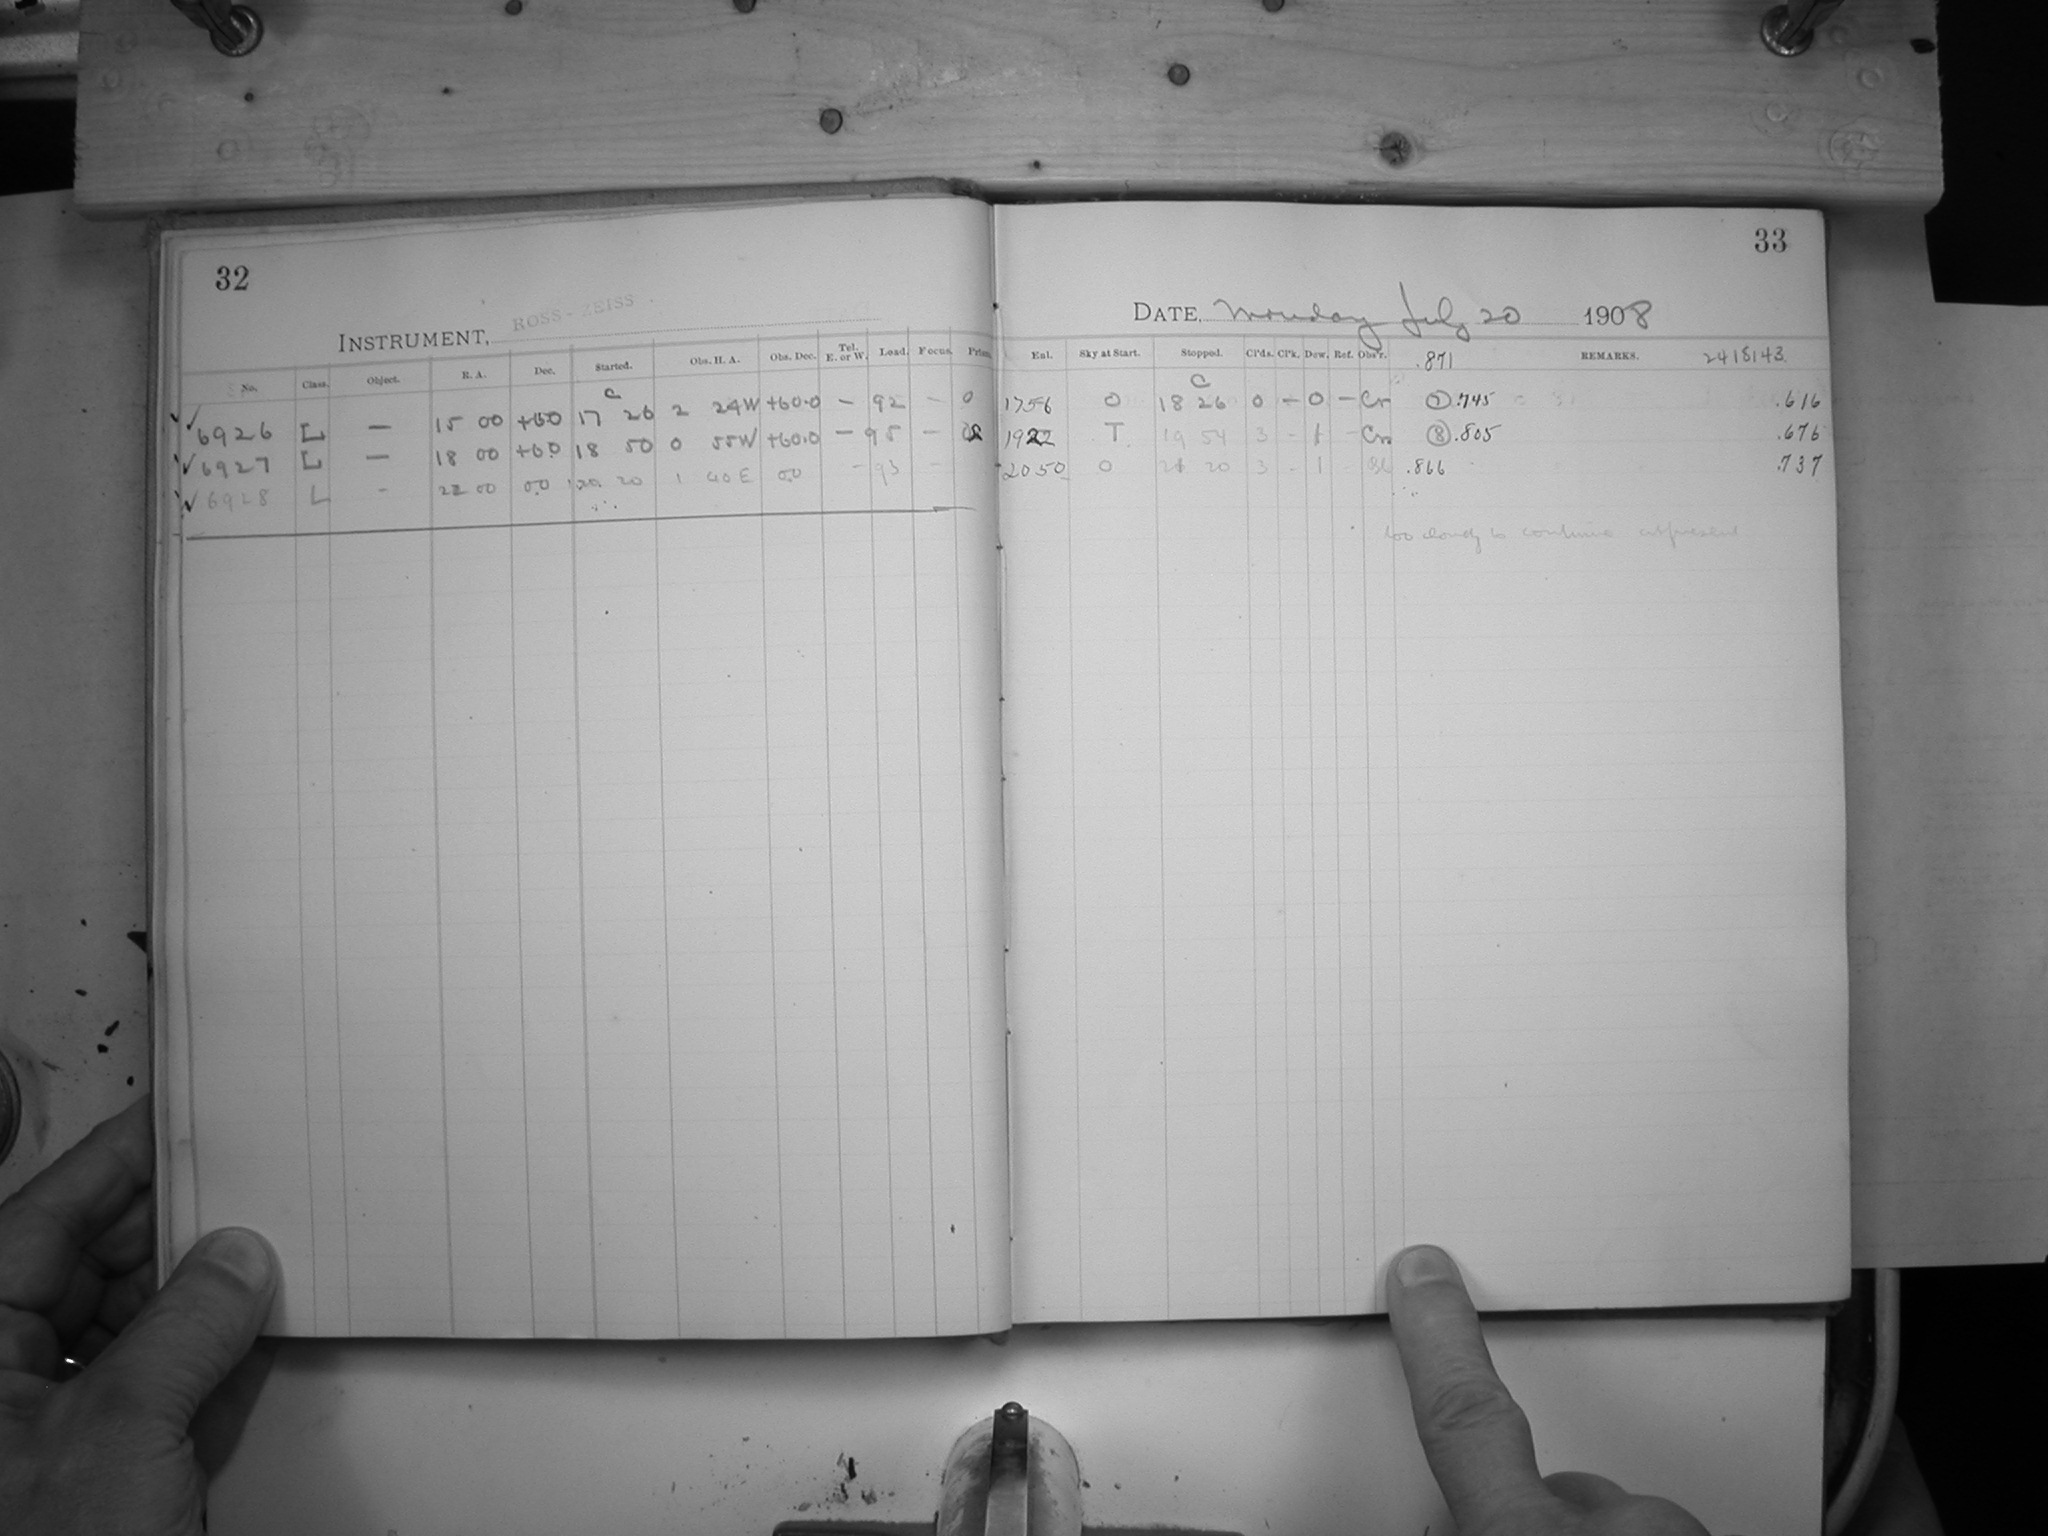 32
INSTRUMENT, ROSS-ZEISS.
No. Class. Object. R. A. Dec. Started. Obs. H. A. Obs. Dec. Tel. E. or W. Load. Focus. Prism.
C
✓6926 L — 15 00 +60 17 26 2 24W +60.0 — 92 — 0
✓6927 L — 18 00 +60 18 50 0 55W +60.0 — 95 —
✓6928 L - 22 00 00 20 20 1 40E 00 - 93 -
33
DATE, Monday July 20 1908
Enl. Sky at Start. Stopped. Cl'ds. Cl'k. Dew. Ref. Obs'r. .871 REMARKS. 2418143.
C
1756 0 18 26 0 - 0 - Cr ⑦.745 .616
1922 T 19 54 3 - 1 - Cr ⑧.805 .676
2050 0 21 20 3 - 1 - Bl .866 .737
too cloudy to continue at present